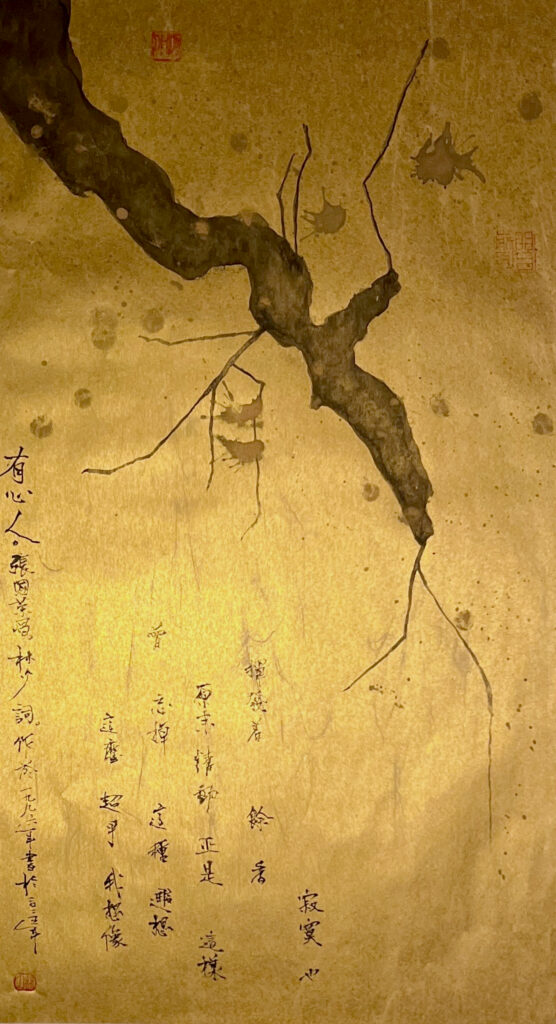 寂寞也
揮發着 餘香
原來 情動 正是 這樣
曾 忘掉 這種 遐想
這麼 超乎 我想像
有心人。張國榮唱 林夕詞。作於一九九六年書於